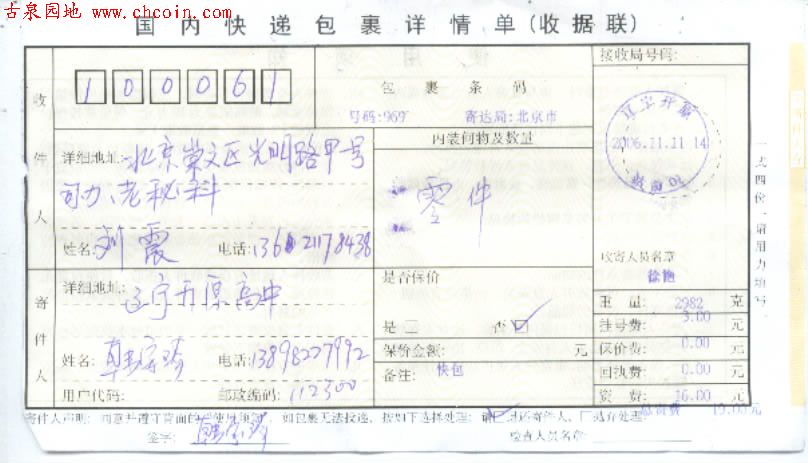 古泉园地 www.chcoin.com
国内快递包裹详情单(收据联)
接收局号码:
收件人
100061
包裹条码
号码:969 寄达局:北京市
辽宁开原
2006.11.11 14
内装何物及数量
详细地址:北京崇文区光明路甲号
零件
姓名:刘霞 电话:
收寄人员名章
徐艳
寄件人
详细地址:辽宁开原高中
是否保价
是 否
重量: 2982 克
挂号费: 3.00 元
姓名: 电话:13898227992
保价金额: 元
保价费: 0.00 元
备注: 快包
回执费: 0.00 元
用户代码: 邮政编码:112300
资费: 16.00 元
总资费 19.00元
寄件人声明:同意并遵守背面的使用须知。如包裹无法投递,按如下选择处理:请退还寄件人、抛弃处理
签字: 检查人员名章:
一式四份,请用力填写